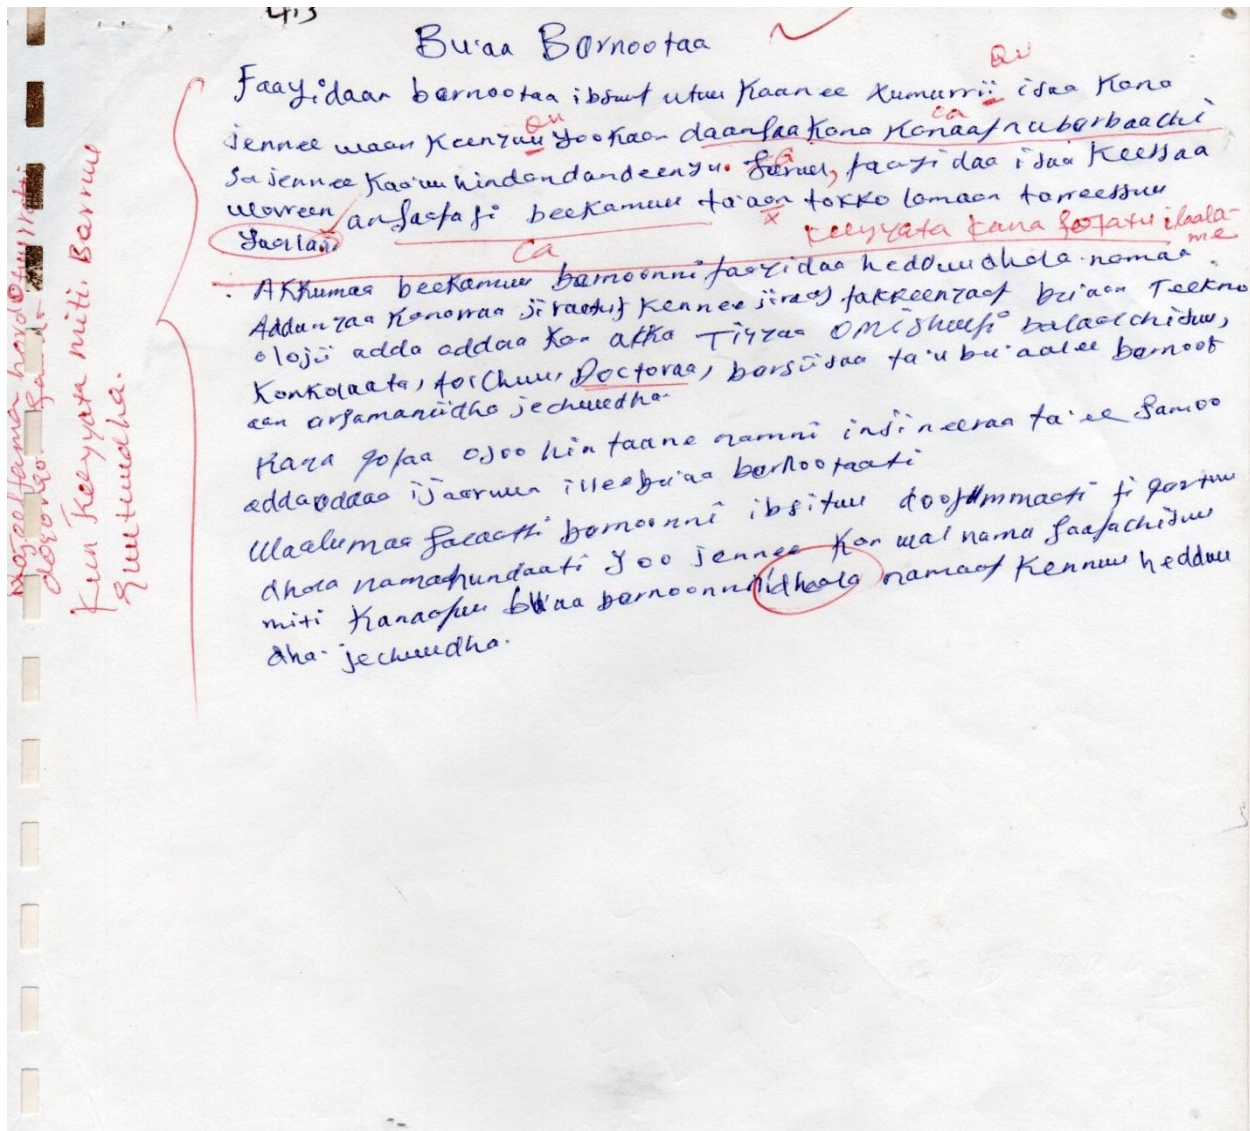 413
Bu'aa Barnootaa
Qu
Faayidaan barnootaa ibsuuf utuu Kaanee Xumurrii isaa Kana
Qu Ca
jennee waan Keenyuu yookaan daangaa Kana Kanaaf nu barbaachi
sa jennee Kaa'uu hindandandeenyu. Garuu, faayidaa isaa Keessaa
warreen angafafi beekamuu ta'aan tokko lamaan tarreessuu
x
yaalan
Keeyyata kana fotatu ilaala-
me
Ca
AKKumaa beekamuu barnoonni faayidaa hedduu dhala namaa
Addunyaa Kanarraa jiraatuf Kennee jiraaf fakkeenyaaf bu'aan Teekno
olojii adda addaa Kan akka Tiyyaa Omishuufi balaalchiduu,
Konkolaata, doichuu, Doctoraa, barsiisaa ta'u bu'aalee barnoot
aan argamaniidha jechuudha.
Kana qofaa osoo hin taane namni injineeraa ta'ee gamoo
addaaddaa ijaaruun illee bu'aa barnootaati
Waalumaa galaatti barnoonni ibsituu doofummaati fi qartuu
dhala namahundaati Yoo jennee Kan wal nama gaafachisuu
miti Kanaafuu bu'aa barnoonni dhaala namaaf Kennuu hedduu
dha. jechuudha.
Kun Keeyyata miti. Barruu
guutuudha.